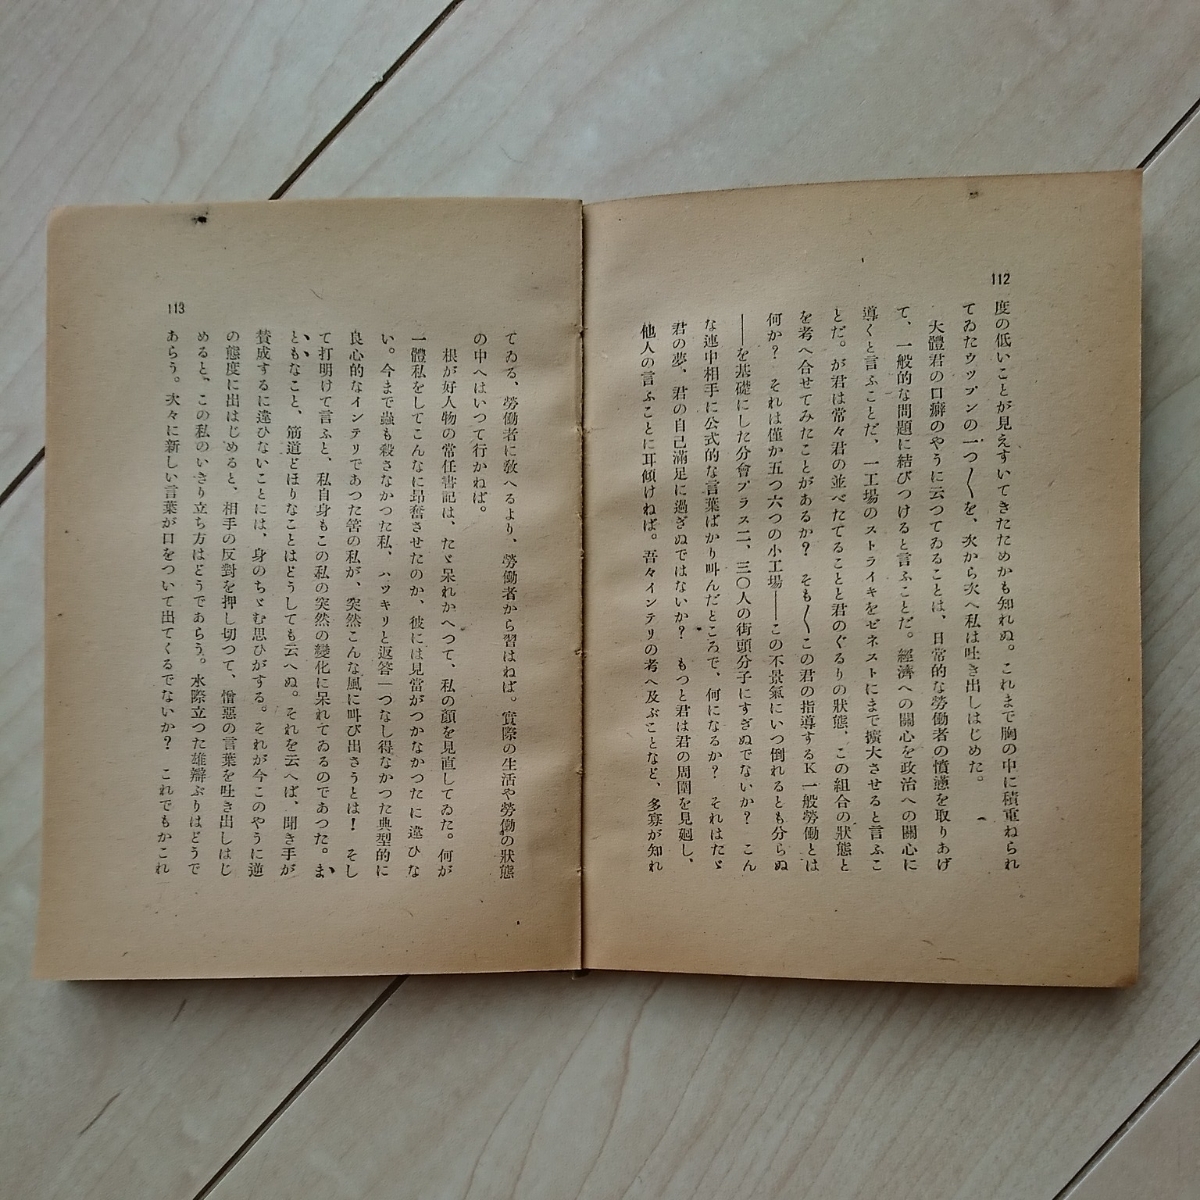 112
度の低いことが見えすいてきたためかも知れぬ。これまで胸の中に積重ねられ
てゐたウップンの一つ〱を、次から次へ私は吐き出しはじめた。
大體君の口癖のやうに云つてゐることは、日常的な勞働者の憤懣を取りあげ
て、一般的な問題に結びつけると言ふことだ。經濟への關心を政治への關心に
導くと言ふことだ、一工場のストライキをゼネストにまで擴大させると言ふこ
とだ。が君は常々君の並べたてることと君のぐるりの狀態、この組合の狀態と
を考へ合せてみたことがあるか？　そも〱この君の指導するK一般勞働とは
何か？　それは僅か五つ六つの小工場――この不景氣にいつ倒れるとも分らぬ
――を基礎にした分會プラス二、三〇人の街頭分子にすぎぬでないか？　こん
な連中相手に公式的な言葉ばかり叫んだところで、何になるか？　それはたゞ
君の夢、君の自己滿足に過ぎぬではないか？　もつと君は君の周圍を見廻し、
他人の言ふことに耳傾けねば。吾々インテリの考へ及ぶことなど、多寡が知れ
113
てゐる、勞働者に敎へるより、勞働者から習はねば。實際の生活や勞働の狀態
の中へはいつて行かねば。
根が好人物の常任書記は、たゞ呆れかへつて、私の顏を見直してゐた。何が
一體私をしてこんなに昂奮させたのか、彼には見當がつかなかつたに違ひな
い。今まで蟲も殺さなかつた私、ハッキリと返答一つなし得なかつた典型的に
良心的なインテリであつた筈の私が、突然こんな風に叫び出さうとは！　そし
て打明けて言ふと、私自身もこの私の突然の變化に呆れてゐるのであつた。ま
ともなこと、筋道どほりなことはどうしても云へぬ。それを云へば、聞き手が
贊成するに違ひないことには、身のちゞむ思ひがする。それが今このやうに逆
の態度に出はじめると、相手の反對を押し切つて、憎惡の言葉を吐き出しはじ
めると、この私のいきり立ち方はどうであらう。水際立つた雄辯ぶりはどうで
あらう。次々に新しい言葉が口をついて出てくるでないか？　これでもかこれ